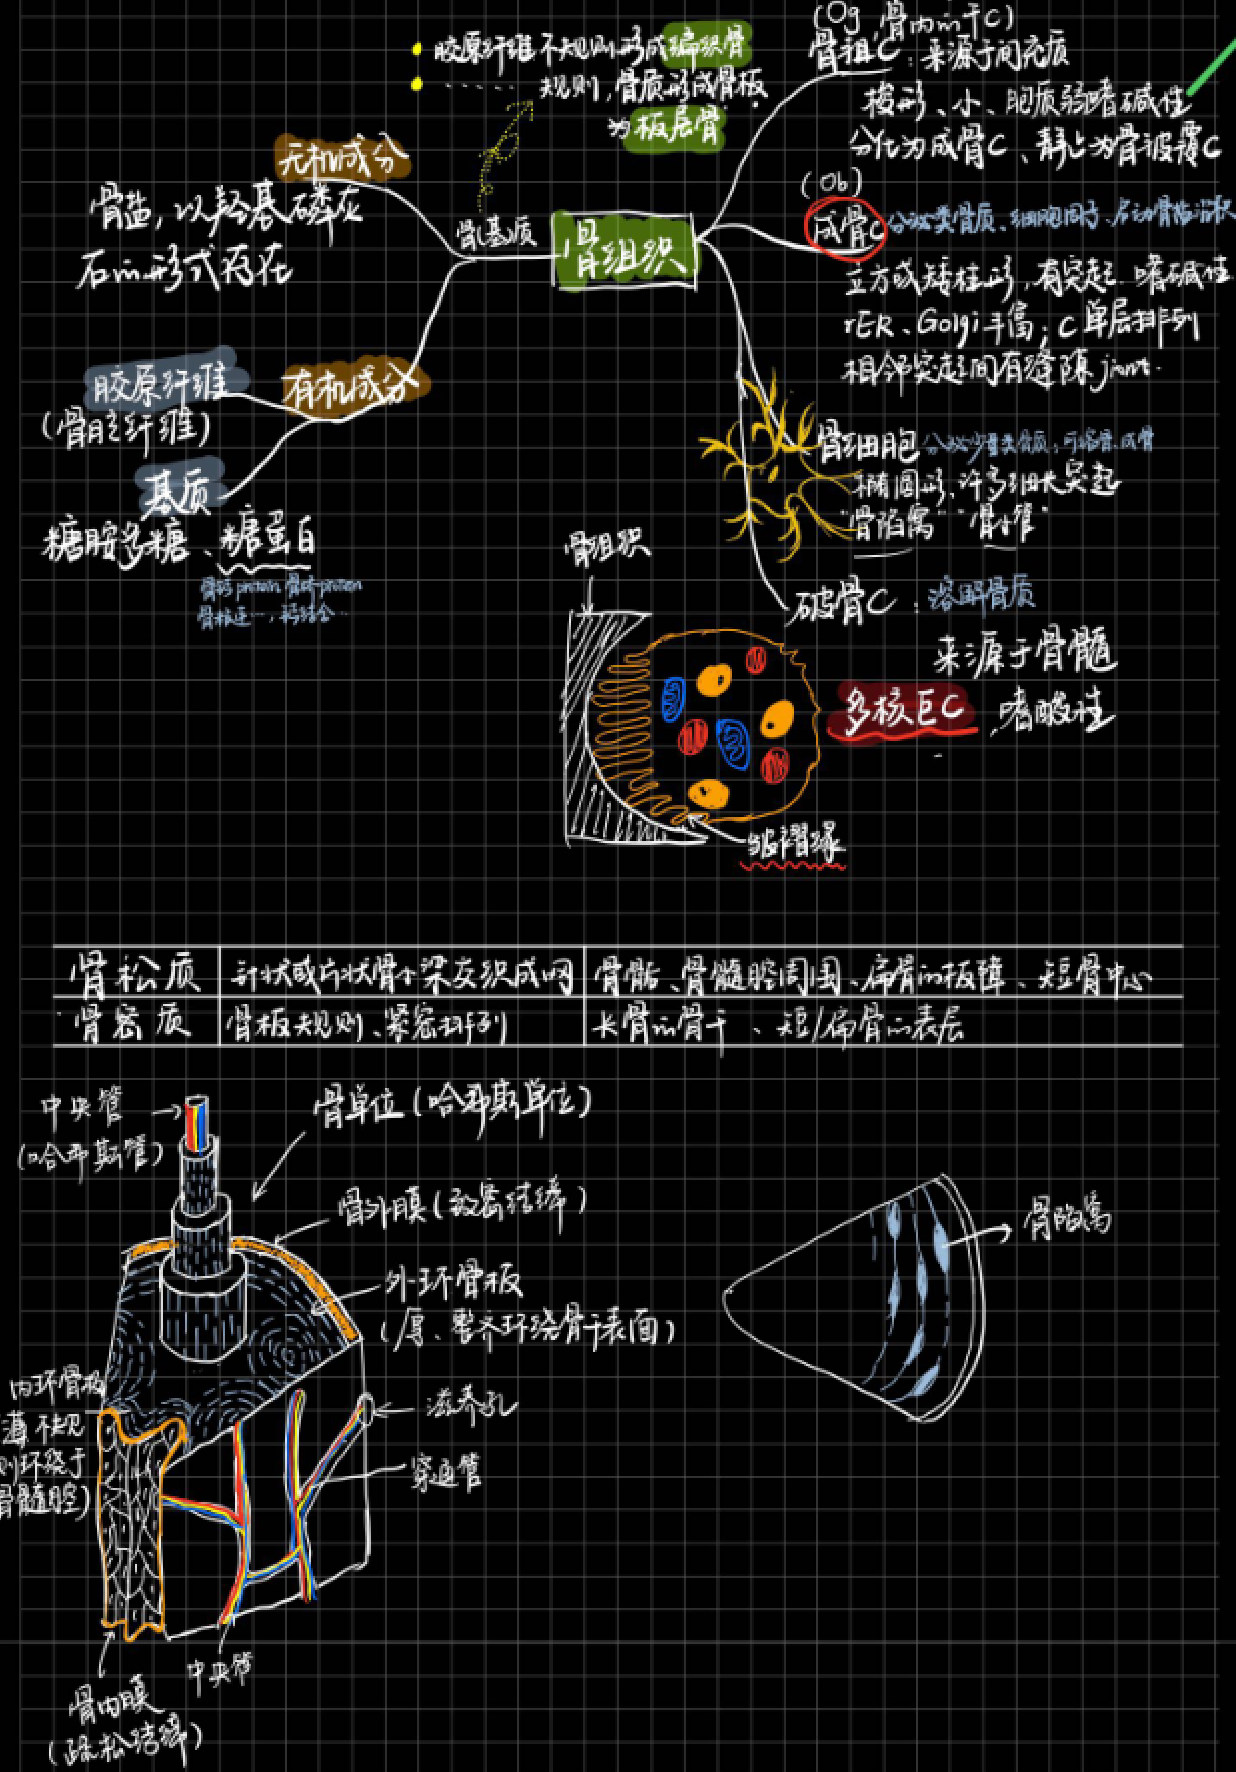 (Og, 骨内的干C)
骨祖C：来源于间充质
梭形、小、胞质弱嗜碱性
分化为成骨C、静止为骨被覆C
• 胶原纤维不规则形成编织骨
• ······ 规则，骨质形成骨板
为板层骨
无机成分
骨盐，以羟基磷灰
石的形式存在
骨(基)质
骨组织
(Ob)
成骨C 分泌类骨质、细胞因子、启动骨盐沉积
立方或矮柱形，有突起、嗜碱性
rER、Golgi丰富；C单层排列
相邻突起间有缝隙junt.
胶原纤维
(骨胶纤维)
有机成分
基质
糖胺多糖、糖蛋白
骨钙protein 骨桥protein
骨粘连…，钙结合..
骨细胞 分泌少量类骨质；可溶骨、成骨
椭圆形、许多细长突起
"骨陷窝" "骨小管"
破骨C：溶解骨质
来源于骨髓
多核巨C、嗜酸性
骨组织
皱褶缘
骨松质 针状或片状骨小梁交织成网 骨骺、骨髓腔周围、扁骨的板障、短骨中心
骨密质 骨板规则、紧密排列 长骨的骨干、短/扁骨的表层
中央管
(哈弗斯管)
骨单位(哈弗斯单位)
骨外膜(致密结缔)
外环骨板
(厚、整齐环绕骨干表面)
内环骨板
薄 不规
则环绕于
骨髓腔)
滋养孔
穿通管
中央管
骨内膜
(疏松结缔)
骨陷窝